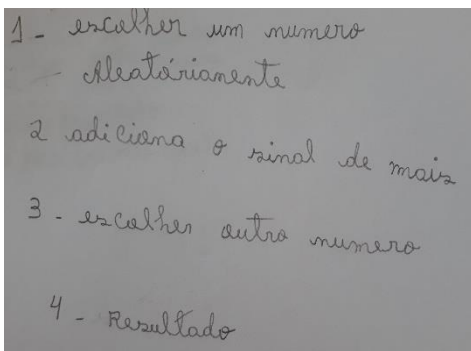 1 - escolher um numero
- Aleatórianente
2 adiciona o sinal de mais
3 - escolher outro numero
4 - Resultado